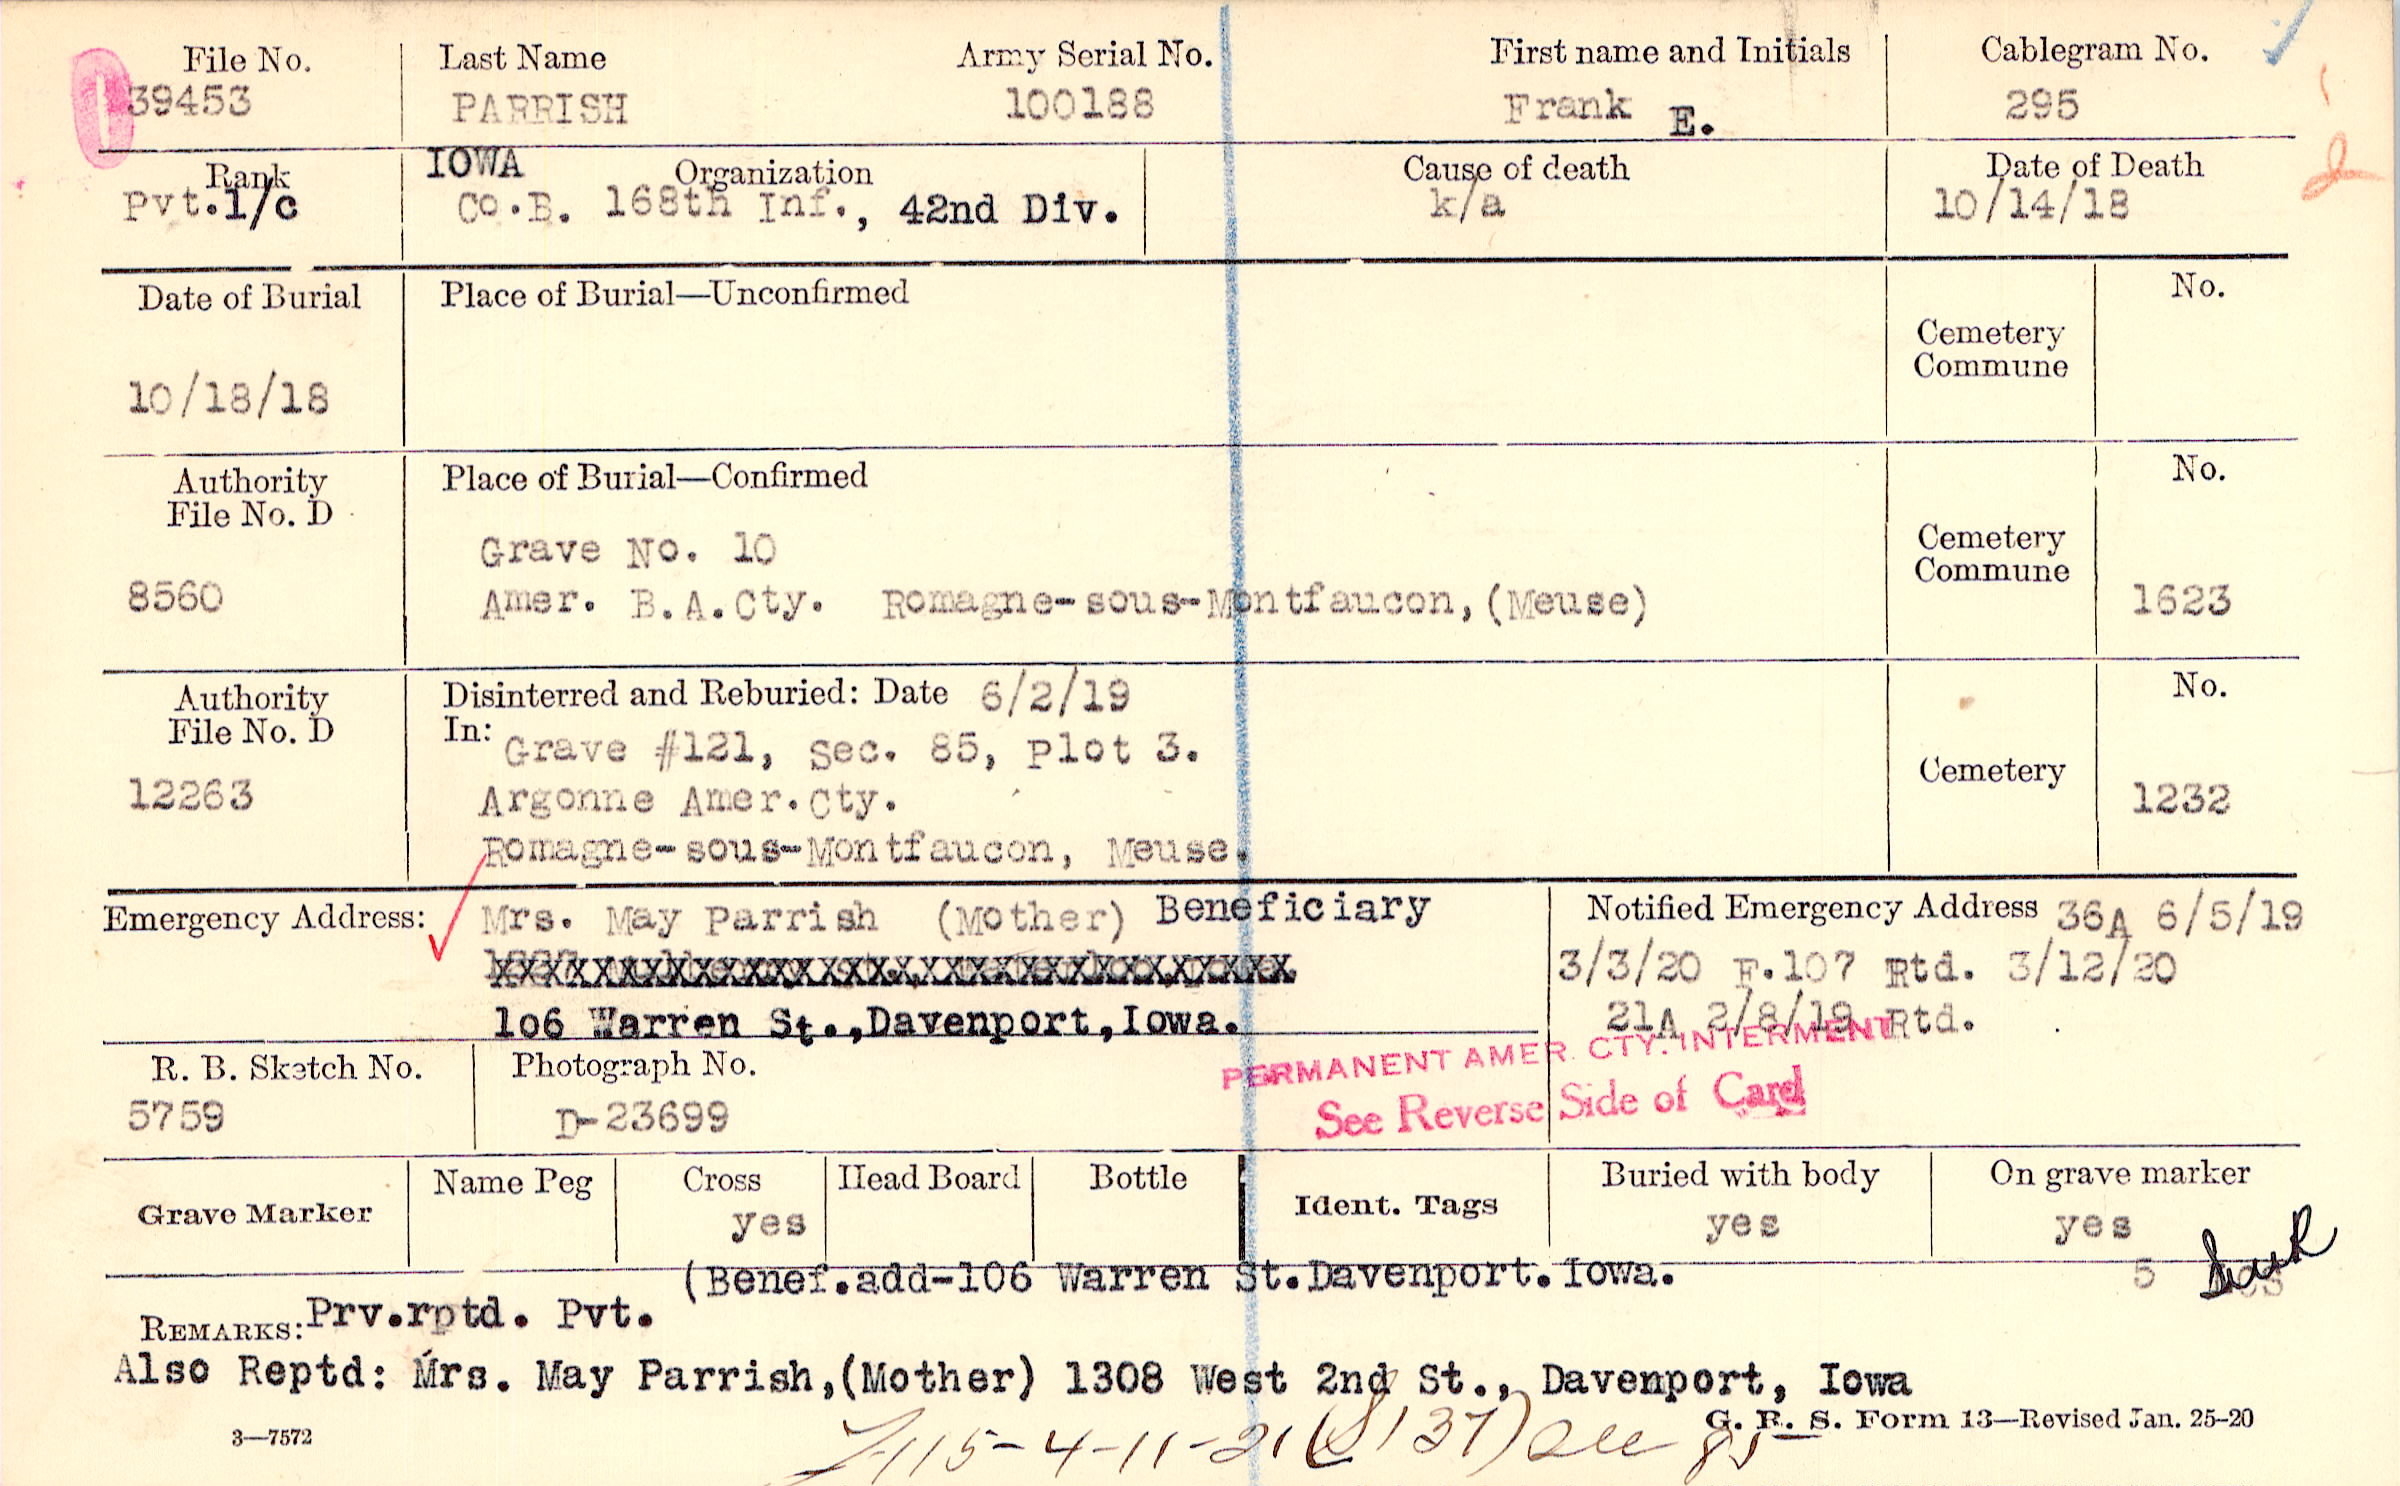 File No. Last Name Army Serial No. First name and Initials Cablegram No.
39453 PARRISH 100188 Frank E. 295
Rank IOWA Organization Cause of death Date of Death
Pvt.1/c Co.B. 168th Inf., 42nd Div. k/a 10/14/18
Date of Burial Place of Burial—Unconfirmed No.
Cemetery
Commune
10/18/18
Authority Place of Burial—Confirmed No.
File No. D
Grave No. 10 Cemetery
Commune
8560 Amer. B.A.Cty. Romagne-sous-Montfaucon,(Meuse) 1623
Authority Disinterred and Reburied: Date 6/2/19 No.
File No. D In: Grave #121, Sec. 85, Plot 3.
Cemetery
12263 Argonne Amer.Cty. 1232
Romagne-sous-Montfaucon, Meuse.
Emergency Address: Mrs. May Parrish (Mother) Beneficiary Notified Emergency Address 36A 6/5/19
3/3/20 F.107 Rtd. 3/12/20
106 Warren St.,Davenport,Iowa. 21A 2/8/19 Rtd.
PERMANENT AMER. CTY. INTERMENT
See Reverse Side of Card
R. B. Sketch No. Photograph No.
5759 D-23699
Grave Marker Name Peg Cross Head Board Bottle Ident. Tags Buried with body On grave marker
yes yes yes
(Benef.add-106 Warren St.Davenport.Iowa. 5
REMARKS: Prv.rptd. Pvt.
Also Reptd: Mrs. May Parrish,(Mother) 1308 West 2nd St., Davenport, Iowa
3—7572 G. R. S. Form 13—Revised Jan. 25-20
115-4-11-21 137)